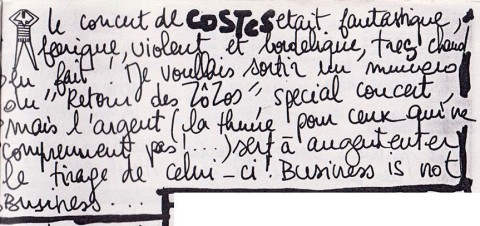 Le concert de COSTES était fantastique,
féerique, violent et bordelique, trez chaud
en fait! Je voullais sortir un numero
du "Retour des ZôZos" special concert,
mais l'argent (la thune pour ceux qui ne
comprennent pas!...) sert à augententer
le tirage de celui-ci! Business is not
Business...